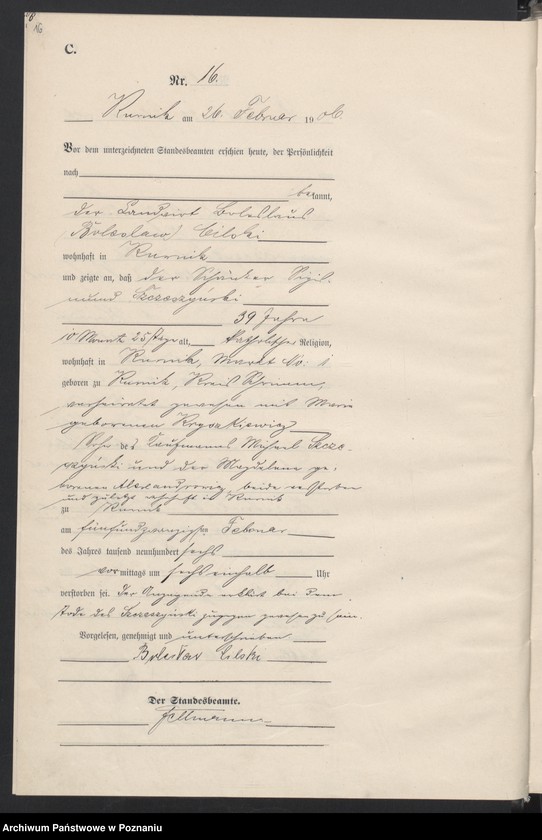 16
C.
Nr. 16.
Kurnik am 26. Februar 1906.
Vor dem unterzeichneten Standesbeamten erschien heute, der Persönlichkeit
nach
bekannt,
der Landwirt Boleslaus
(Boleslaw) Cilski
wohnhaft in Kurnik
und zeigte an, daß der Schänker Sigis-
mund Szczeszyński
39 Jahre
10 Monate 25 Tage alt, katholischer Religion,
wohnhaft in Kurnik, Markt No. 1
geboren zu Kurnik, Kreis Schrimm,
verheiratet gewesen mit Maria
geborenen
Sohn des Kaufmanns Michael Szcze-
szyński und der Magdalena ge-
borenen beide verstorben
und zuletzt wohnhaft in Kurnik
zu Kurnik
am fünfundzwanzigsten Februar
des Jahres tausend neunhundert sechs
vormittags um sechseinhalb Uhr
verstorben sei. Der Anzeigende erklärt bei dem
Tode des Szczeszyński zugegen gewesen zu sein.
Vorgelesen, genehmigt und unterschrieben
Bolesław Cilski
Der Standesbeamte.
Archiwum Państwowe w Poznaniu